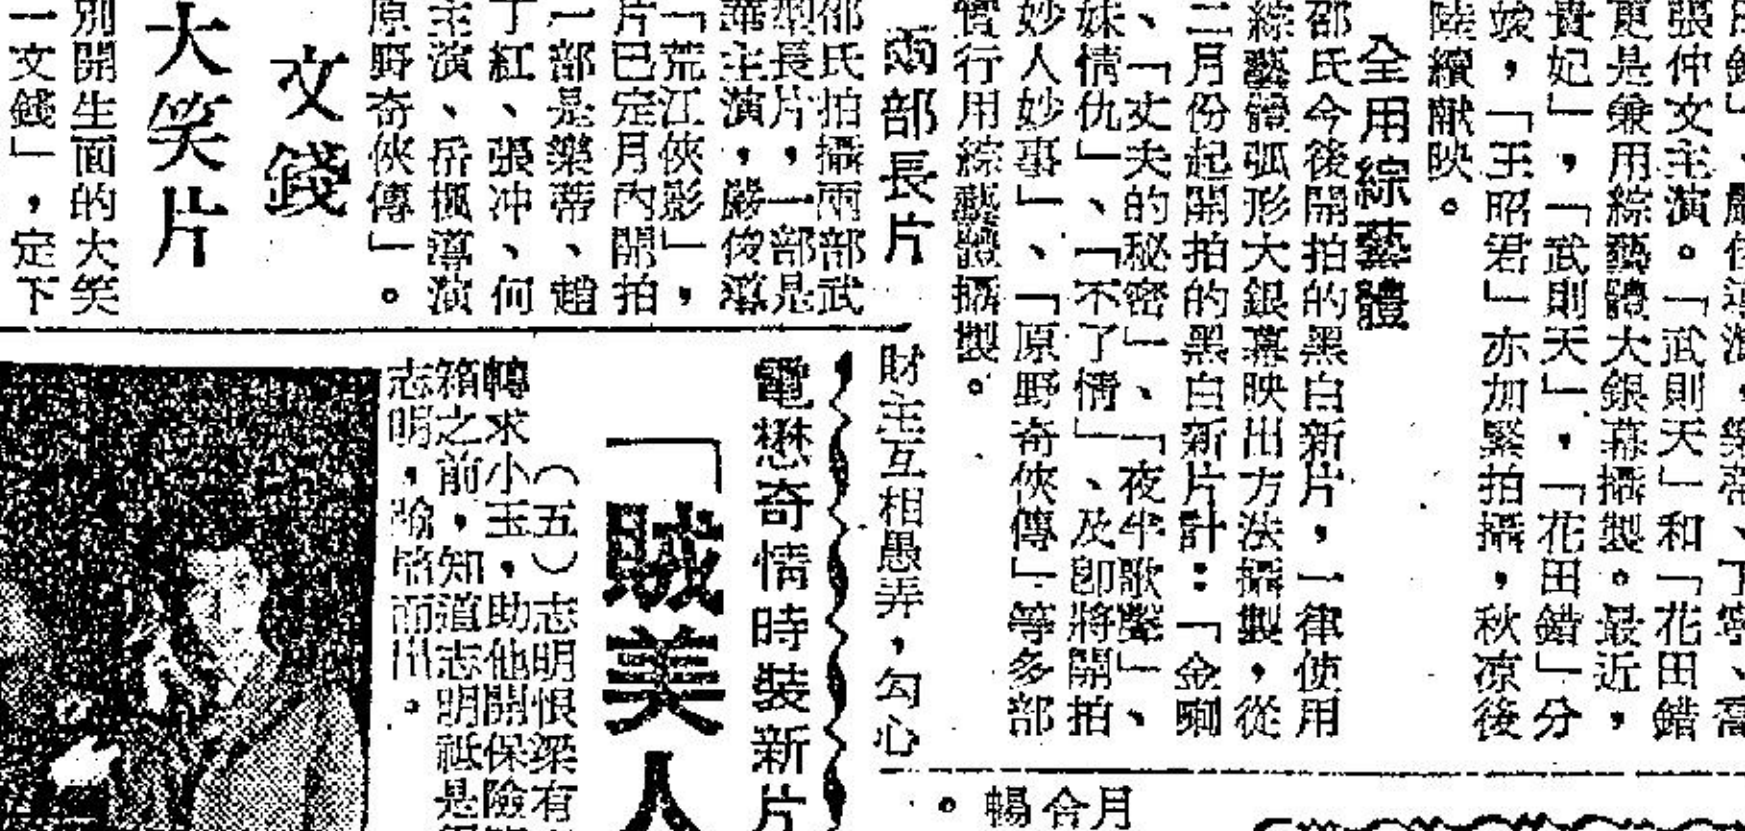 張仲文主演。「武則天」和「花田錯
更是兼用綜藝體大銀幕攝製。最近,
貴妃」,「武則天」,「花田錯」分
竣,「王昭君」亦加緊拍攝,秋凉後
陸續献映。
全用綜藝體
邵氏今後開拍的黑白新片,一律使用
綜藝體弧形大銀幕映出方法攝製,從
二月份起開拍的黑白新片計:「金喇
、「丈夫的秘密」、「夜半歌聲」、
妹情仇」、「不了情」、及卽將開拍
妙人妙事」、「原野奇俠傳」等多部
實行用綜藝體攝製。
兩部長片
邵氏拍攝兩部武
型長片,一部是
華主演,嚴俊導
「荒江俠影」,
片已定月內開拍
一部是樂蒂、趙
丁紅、張冲、何
主演、岳楓導演
原野奇俠傳」。
一文錢
大笑片
別開生面的大笑
一文錢」,定下
財主互相愚弄,勾心
電懋奇情時裝新片
「賊美人
(五)志明恨梁有
轉求小玉,助他開保險
箱之前,知道志明祇是
志明,
而出。
月
合
暢
。